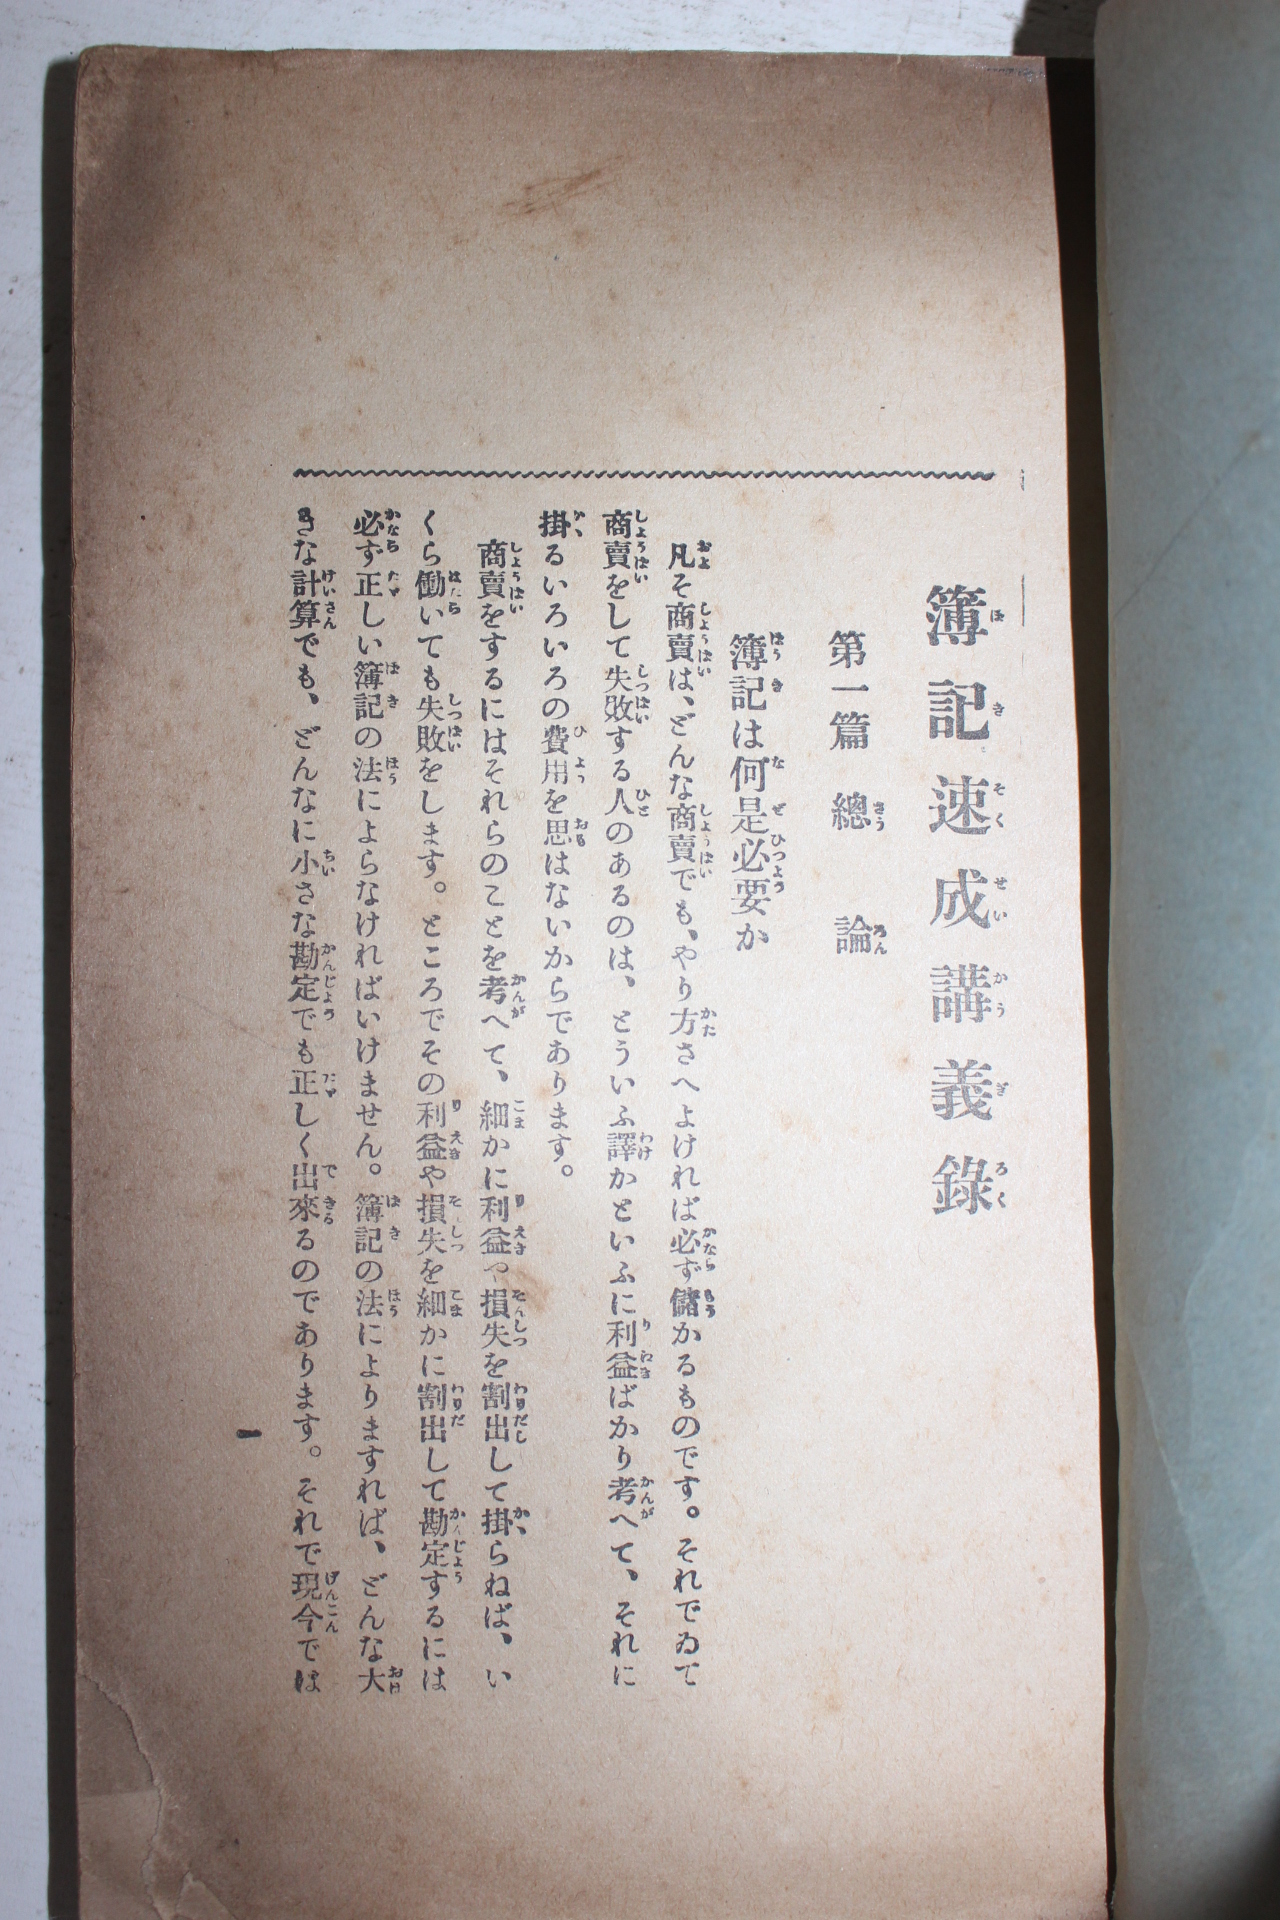 簿記速成講義錄
第一篇 總論
簿記は何是必要か
凡そ商賣は、どんな商賣でも、やり方さへよければ必ず儲かるものです。それでゐて
商賣をして失敗する人のあるのは、どういふ譯かといふに利益ばかり考へて、それに
掛るいろいろの費用を思はないからであります。
商賣をするにはそれらのことを考へて、細かに利益や損失を割出して掛らねば、い
くら働いても失敗をします。ところでその利益や損失を細かに割出して勘定するには
必ず正しい簿記の法によらなければいけません。簿記の法によりますれば、どんな大
きな計算でも、どんなに小さな勘定でも正しく出來るのであります。それで現今では
一